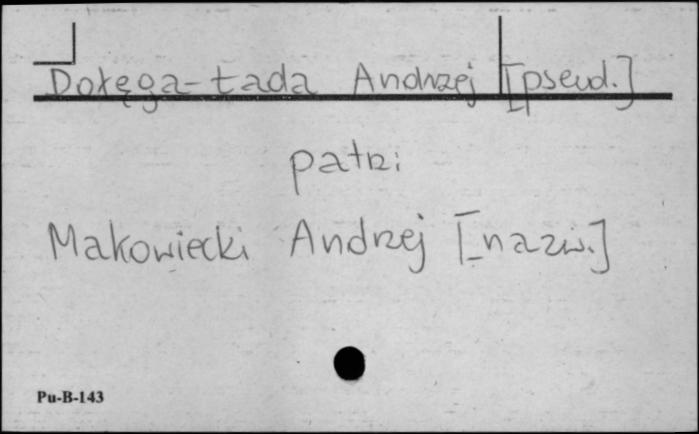 Dołęga-Łada Andrzej [pseud.]
patrz:
Makowiecki Andrzej [nazw.]
Pu-B-143